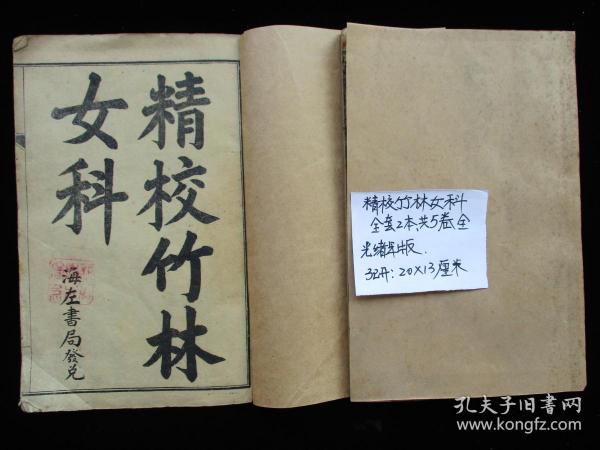 精校竹林
女科
海左書局發兌
精校竹林女科
全套2本、共5卷全
光绪年版.
32开: 20×13厘米
孔夫子旧书网
www.kongfz.com